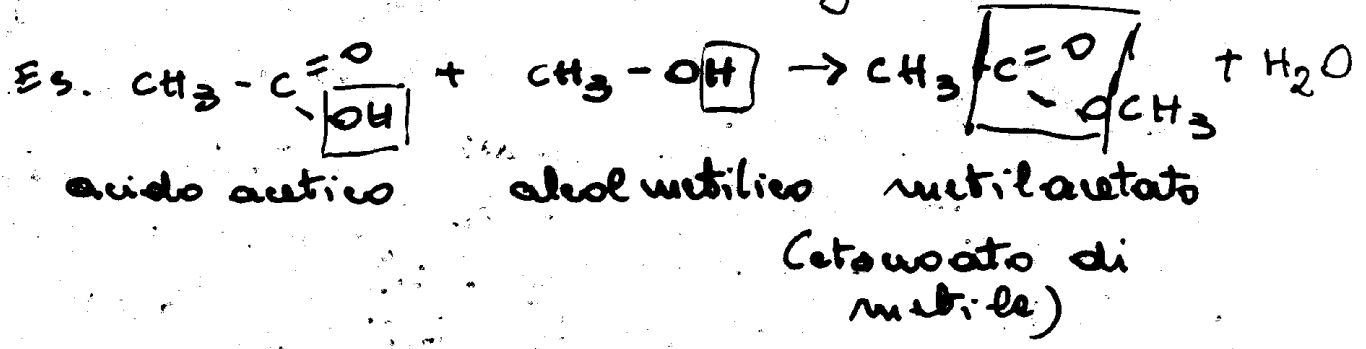 Es. CH₃-C=O-OH + CH₃-OH → CH₃-C=O-OCH₃ + H₂O
acido acetico alcol metilico metilacetato
(etanoato di
metile)